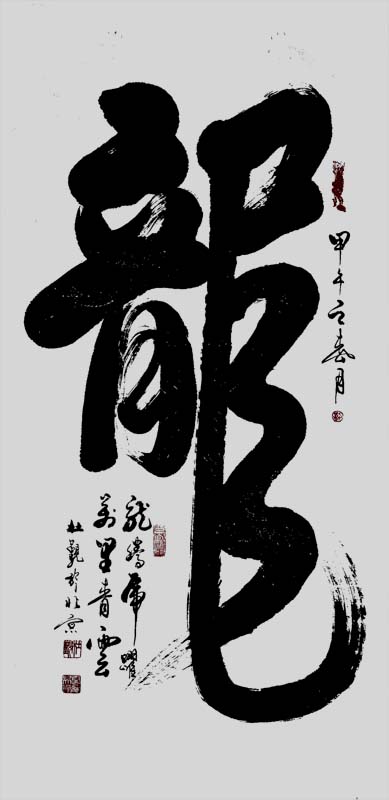 龍
甲午之春月
龙騰虎躍
萬里青雲
杜於北京